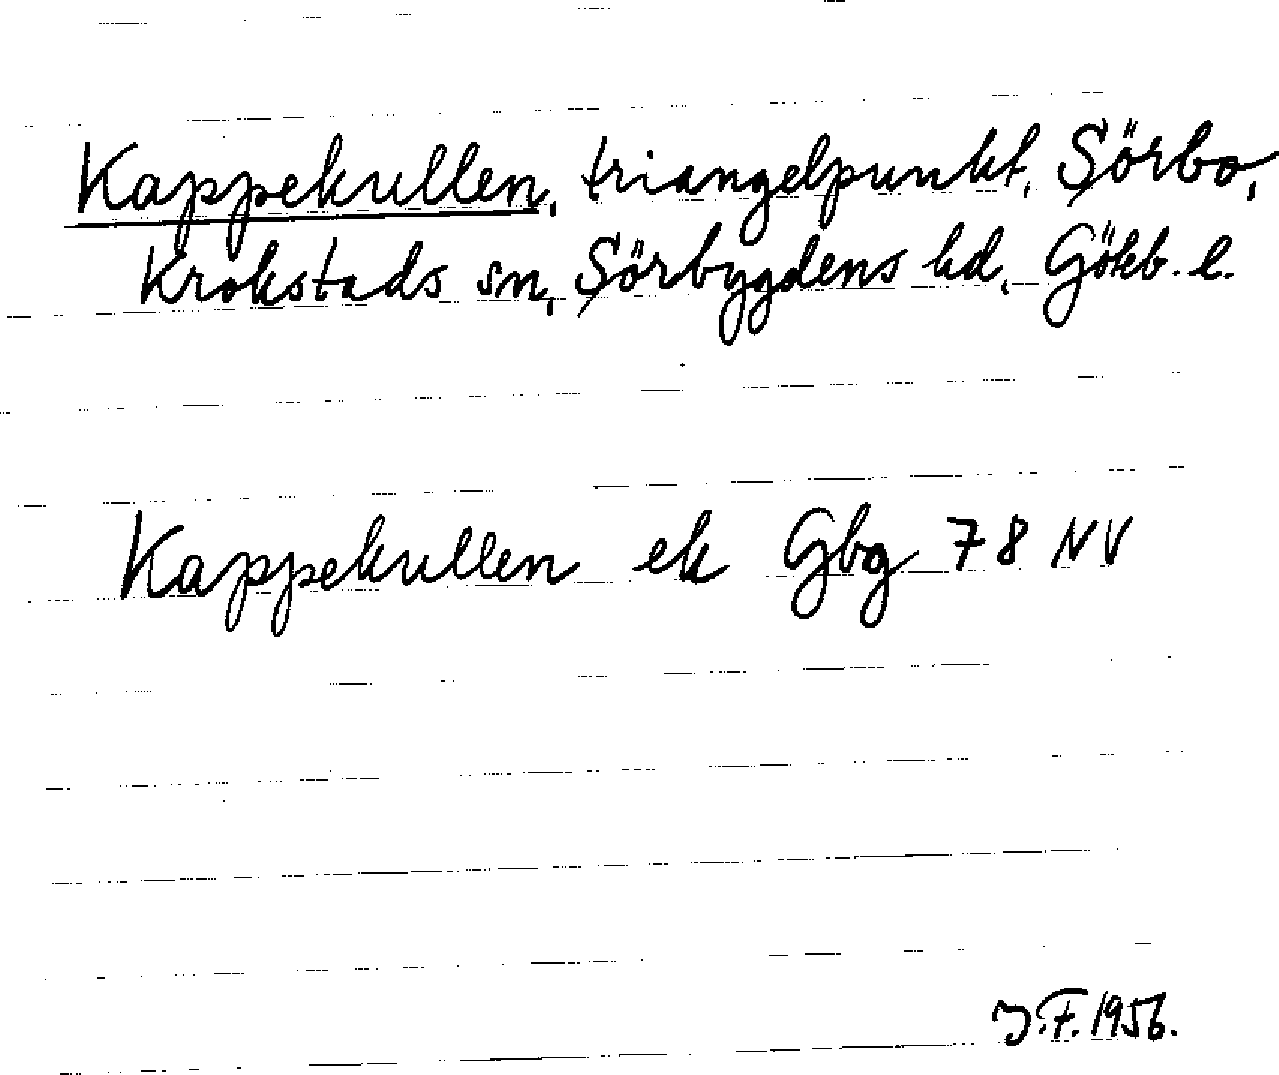 Kappekullen, triangelpunkt, Sörbo,
Krokstads sn, Sörbygdens hd, Gökb. l.
Kappekullen ek Gbg 78 NV
J.F. 1956.